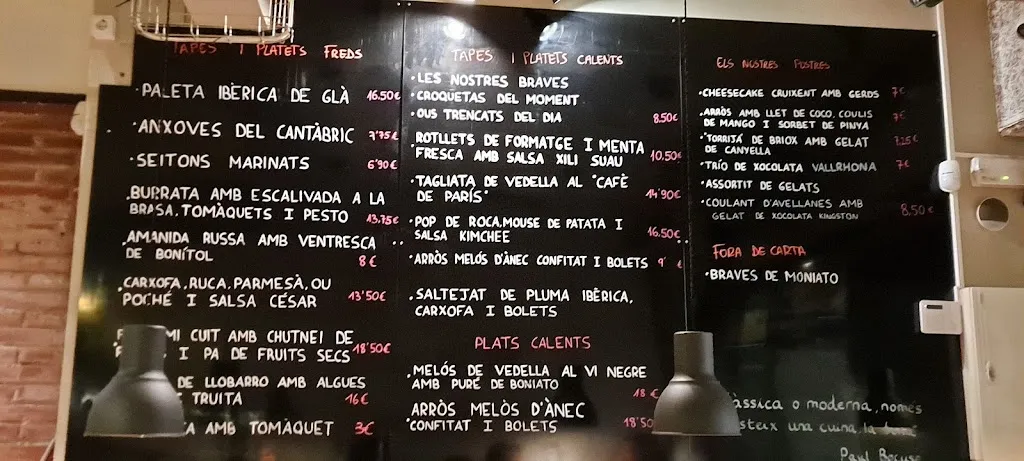 TAPES I PLATETS FREDS
·PALETA IBÈRICA DE GLÀ 16.50€
·ANXOVES DEL CANTÀBRIC 7'75€
·SEITONS MARINATS 6'90€
·BURRATA AMB ESCALIVADA A LA
BRASA, TOMÀQUETS I PESTO 13.75€
·AMANIDA RUSSA AMB VENTRESCA
DE BONÍTOL 8€
·CARXOFA, RUCA, PARMESÀ, OU
POCHÉ I SALSA CÉSAR 13'50€
MI CUIT AMB CHUTNEI DE
I PA DE FRUITS SECS 18'50€
DE LLOBARRO AMB ALGUES
TRUITA 16€
AMB TOMÀQUET 3€
TAPES I PLATETS CALENTS
·LES NOSTRES BRAVES
·CROQUETAS DEL MOMENT
·OUS TRENCATS DEL DIA 8.50€
·ROTLLETS DE FORMATGE I MENTA
FRESCA AMB SALSA XILI SUAU 10.50€
·TAGLIATA DE VEDELLA AL "CAFÈ
DE PARÍS" 14'90€
·POP DE ROCA, MOUSE DE PATATA I
SALSA KIMCHEE 16.50€
·ARRÒS MELÓS D'ÀNEC CONFITAT I BOLETS 9' €
·SALTEJAT DE PLUMA IBÈRICA,
CARXOFA I BOLETS
PLATS CALENTS
·MELÓS DE VEDELLA AL VI NEGRE
AMB PURÉ DE BONIATO 18€
·ARRÒS MELÒS D'ÀNEC
CONFITAT I BOLETS 18'50
ELS NOSTRES POSTRES
·CHEESECAKE CRUIXENT AMB GERDS 7€
·ARRÒS AMB LLET DE COCO, COULIS
DE MANGO I SORBET DE PINYA 7€
·TORRIJA DE BRIOX AMB GELAT
DE CANYELLA 7.25€
·TRÍO DE XOCOLATA VALLRHONA 7€
·ASSORTIT DE GELATS
·COULANT D'AVELLANES AMB
GELAT DE XOCOLATA KINGSTON 8.50€
FORA DE CARTA
·BRAVES DE MONIATO
àssica o moderna, només
steix una cuina, la
Paul Bocuse